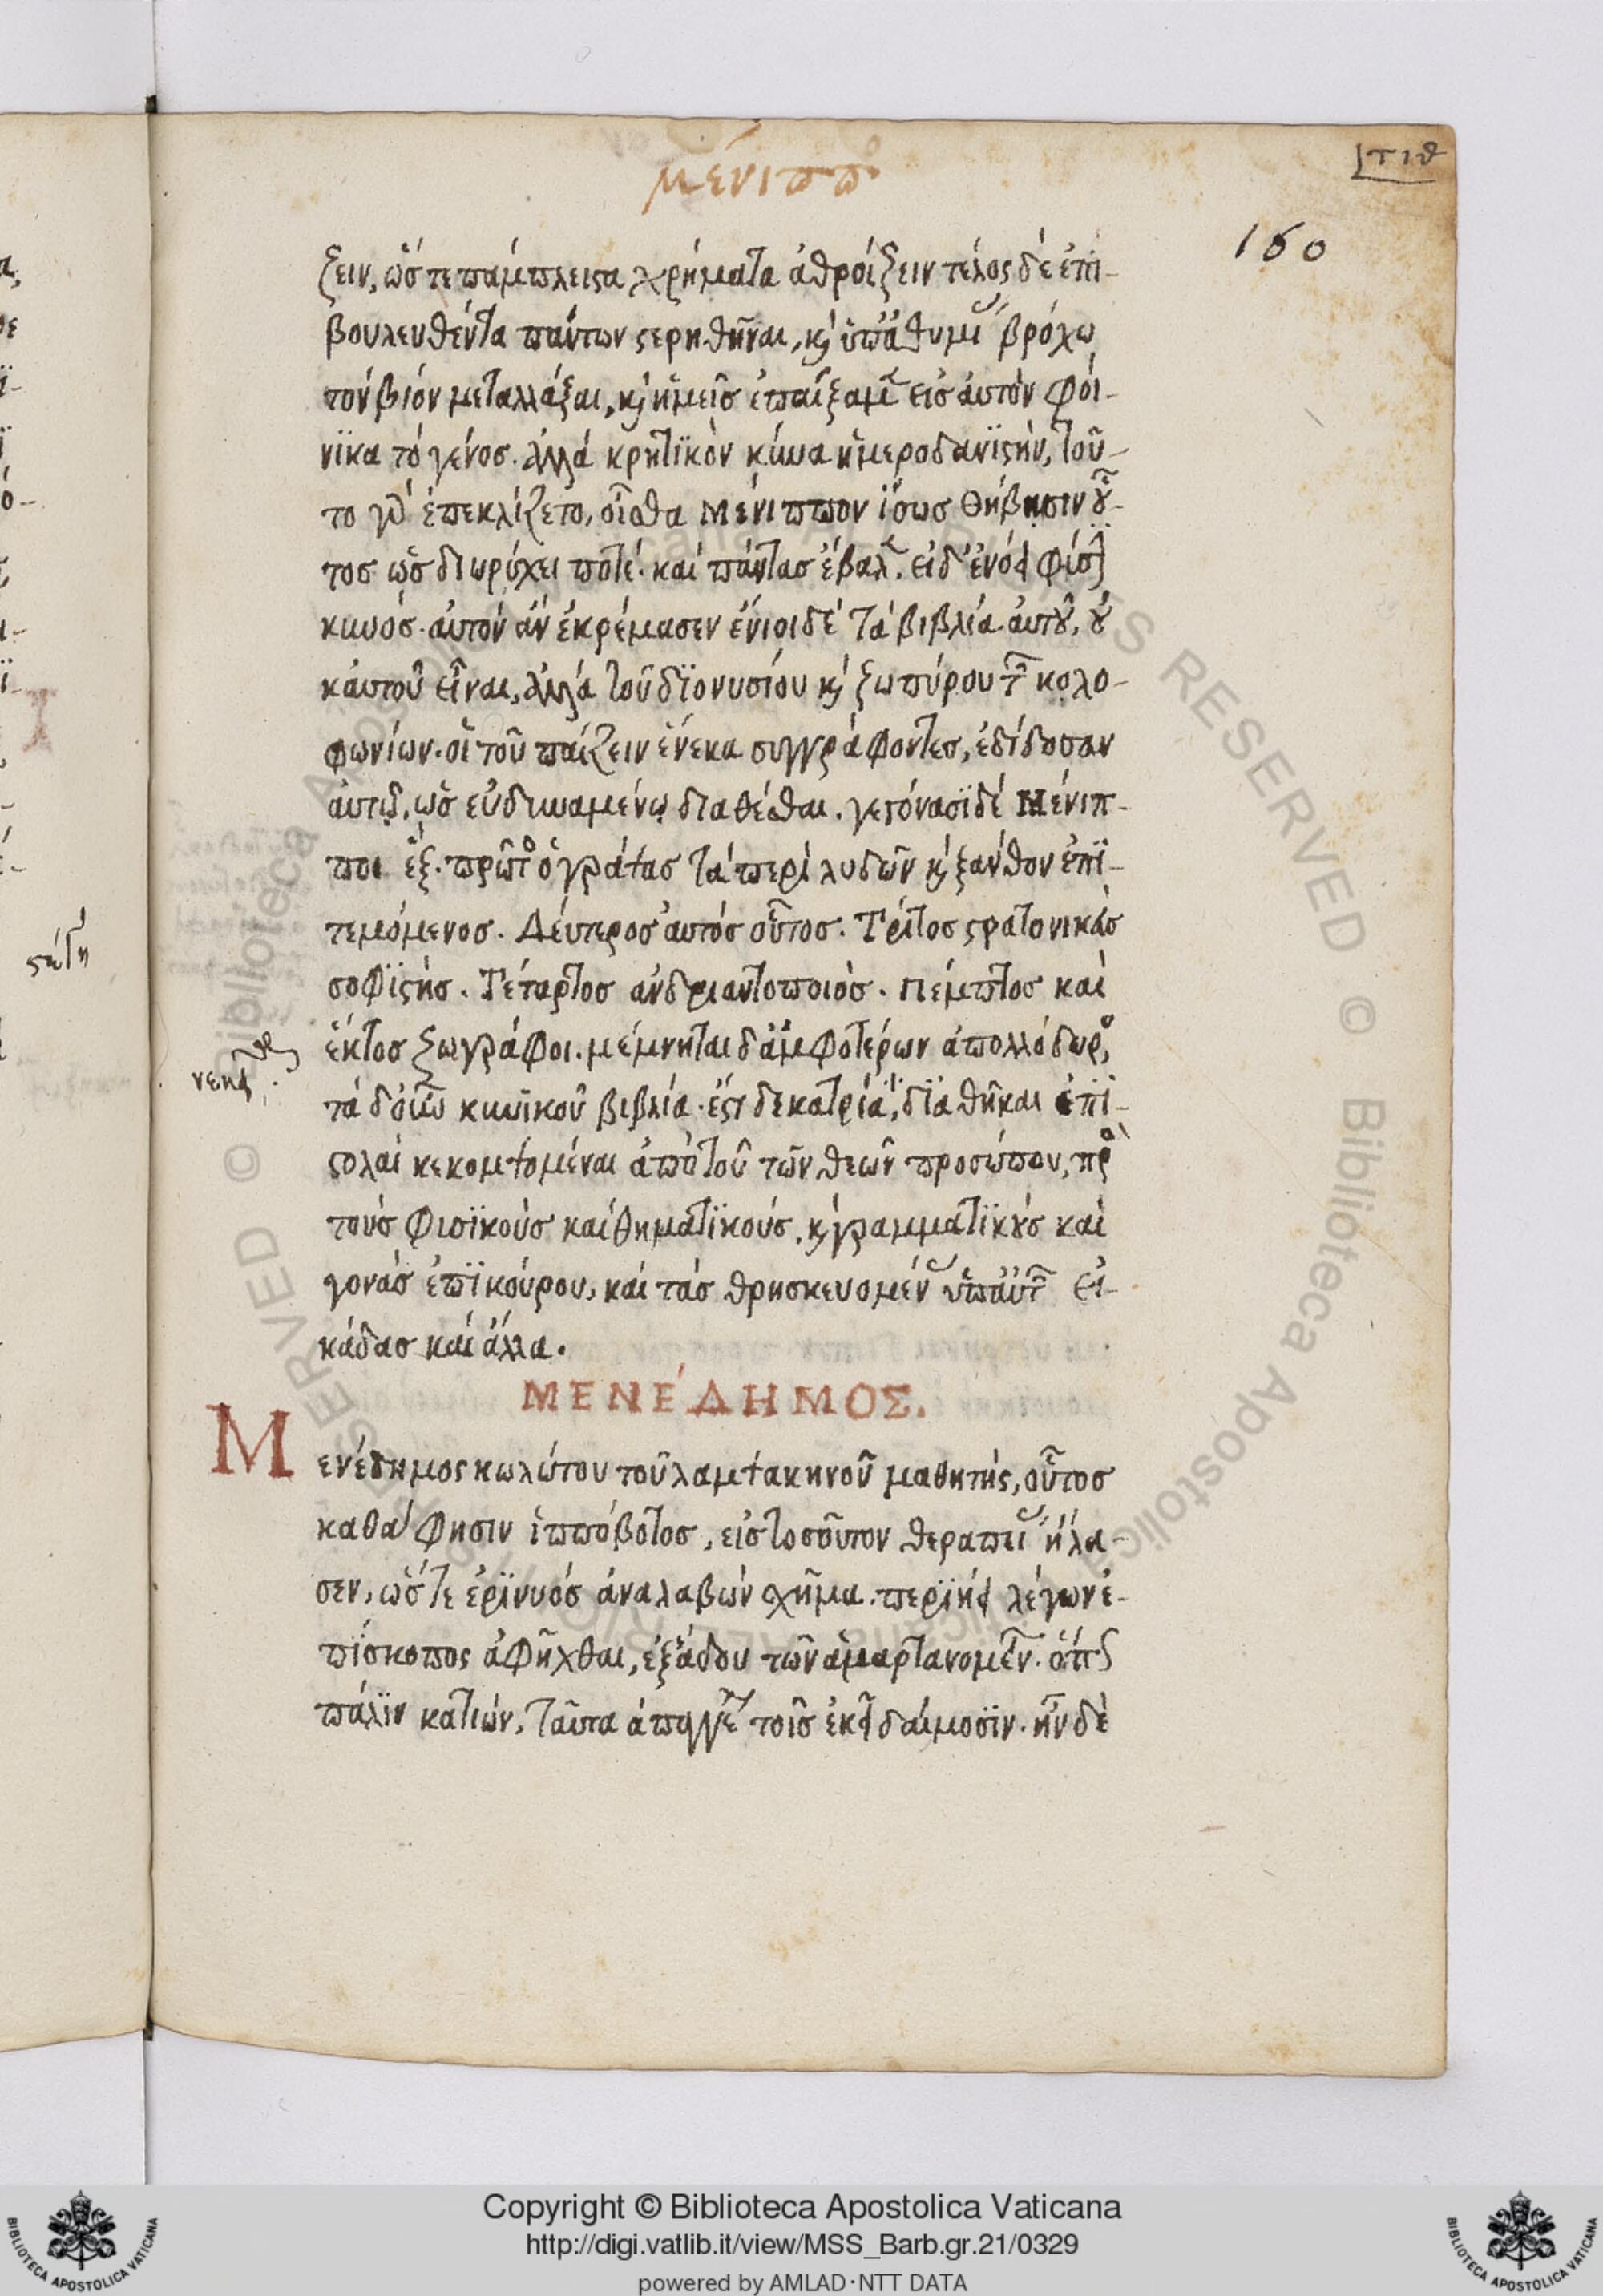 μένιππος
ͺτιθ
160
ξειν, ὥς τε πάμπλειστα χρήματα ἀθροίξειν τέλος δέ ἐπι-
βουλευθέντα πάντων στερηθῆναι, καὶ ὑπ' ἀθυμίας βρόχω
τόν βιόν μεταλλάξαι, καὶ ἡμεῖς ἐπαίξαμεν εἰς ἀυτὸν φοί-
νϊκα τό γένος. ἀλλά κρητϊκὸν κύνα ἡμεροδανϊστὴν, τοῦ-
το γὰρ ἐπεκλίζετο, οἶσθα Μένιππον ἴσως θήβησιν οὗ-
τος ὡς διωρύχει ποτέ. καί πάντας ἔβαλεν. εἰδ' ἐνόει φύσιν
κυνός. ἀυτόν ἄν ἐκρέμασεν ἔνιοι δέ τά βιβλία ἀυτοῦ, οὐ
κἀυτοῦ εἶναι, ἀλλά τοῦ δϊονυσίου καὶ ξωπύρου τῶν κολο-
φωνίων. οἳ τοῦ παίζειν ἕνεκα συγγράφοντες, ἐδίδοσαν
ἀυτῷ, ὡς εὐδυναμένῳ διαθέσθαι. γεγόνασϊ δέ Μένιπ-
ποι ἕξ. πρῶτος ὁ γράψας τά περί λυδῶν καὶ ξάνθον ἐπϊ-
τεμόμενος. Δέυτερος ἀυτός οὗτος. Τρίτος στρατονικὸς
σοφϊστής. Τέταρτος ἀνδριαντοποιὸς. Πέμπτος καὶ
ἕκτος ξωγράφοι. μέμνηται δ' ἀμφοτέρων ἀπολλόδωρος,
τά δ' οὖν κυνικοῦ βιβλία. ἔστι δεκατρία, δϊαθῆκαι ἐπϊ-
στολαί κεκομψομέναι ἀπό τοῦ τῶν θεῶν προσώπου, πρὸς
τούς φισϊκούς καί θηματϊκούς, καὶ γραμματϊκοὺς καὶ
γονάς ἐπϊκούρου, καί τάς θρησκευομένας ὑπ' ἀυτῶν εἰ-
κάδας καί ἄλλα.
ΜΕΝΈΔΗΜΟΣ.
Μενέδημος κωλώτου τοῦ λαμψακηνοῦ μαθητής, οὗτος
καθά φησιν ἱππόβοτος, εἰς τοσοῦτον θεραπείας ἤλα-
σεν, ὥς τε ἐρϊνυός ἀναλαβών σχῆμα. περϊήει λέγων ἐ-
πίσκοπος ἀφῆχθαι, ἐξ ἅδου τῶν ἁμαρτανομένων. ὅπως
πάλϊν κατιών, ταῦτα ἀπαγγέλῃ τοῖς ἐκεῖ δαίμοσϊν. ἦν δὲ
Copyright © Biblioteca Apostolica Vaticana
http://digi.vatlib.it/view/MSS_Barb.gr.21/0329
powered by AMLAD·NTT DATA